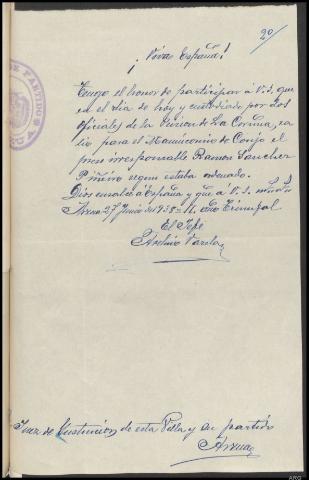 20/
¡Viva España!
Tengo el honor de participar á V.S. que
en el día de hoy y custodiado por dos
Oficiales de la Prision de La Coruña, sa
lio para el Manicomio de Conjo el
preso irresponsable Ramon Sanchez
Piñeiro segun estaba ordenado.
Dios ensalce á España y gue á V.S. m. a.
Arzua 27 Junio de 1938 = II. Año Triunfal
El Jefe
Avelino Varela
Juez de Instruccion de esta Villa y su partido
Arzua